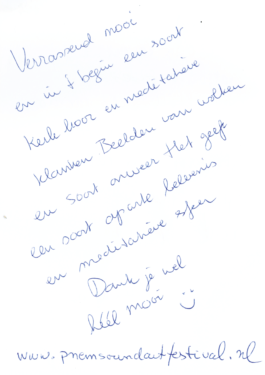 Verrassend mooi
en in 't begin een soort
kerk koor en meditatieve
klanken Beelden van wolken
en soort onweer Het geeft
een soort aparte belevenis
en meditatieve sfeer
Dank je wel
héél mooi
www.pnemsoundartfestival.nl